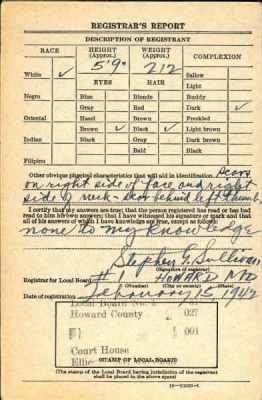 REGISTRAR'S REPORT
DESCRIPTION OF REGISTRANT
RACE HEIGHT (Approx.) WEIGHT (Approx.) COMPLEXION
5'9" 212 Sallow
White ✓ EYES HAIR Light
Negro Blue Blonde Ruddy
Gray Red Dark ✓
Oriental Hazel Brown Freckled
Brown ✓ Black ✓ Light brown
Indian Black Gray Dark brown
Bald Black
Filipino
Other obvious physical characteristics that will aid in identification Scars
on right side of face and right
side of neck - scar behind left thumb.
I certify that my answers are true; that the person registered has read or has had
read to him his own answers; that I have witnessed his signature or mark and that
all of his answers of which I have knowledge are true, except as follows:
none to my knowledge
Stephen G. Sullivan
(Signature of registrar)
Registrar for Local Board #1 HOWARD MD
Date of registration February 15 1942
Local Board No. 1
Howard County 027
001
Court House
(STAMP OF LOCAL BOARD)
(The stamp of the Local Board having jurisdiction of the registrant
shall be placed in the above space)